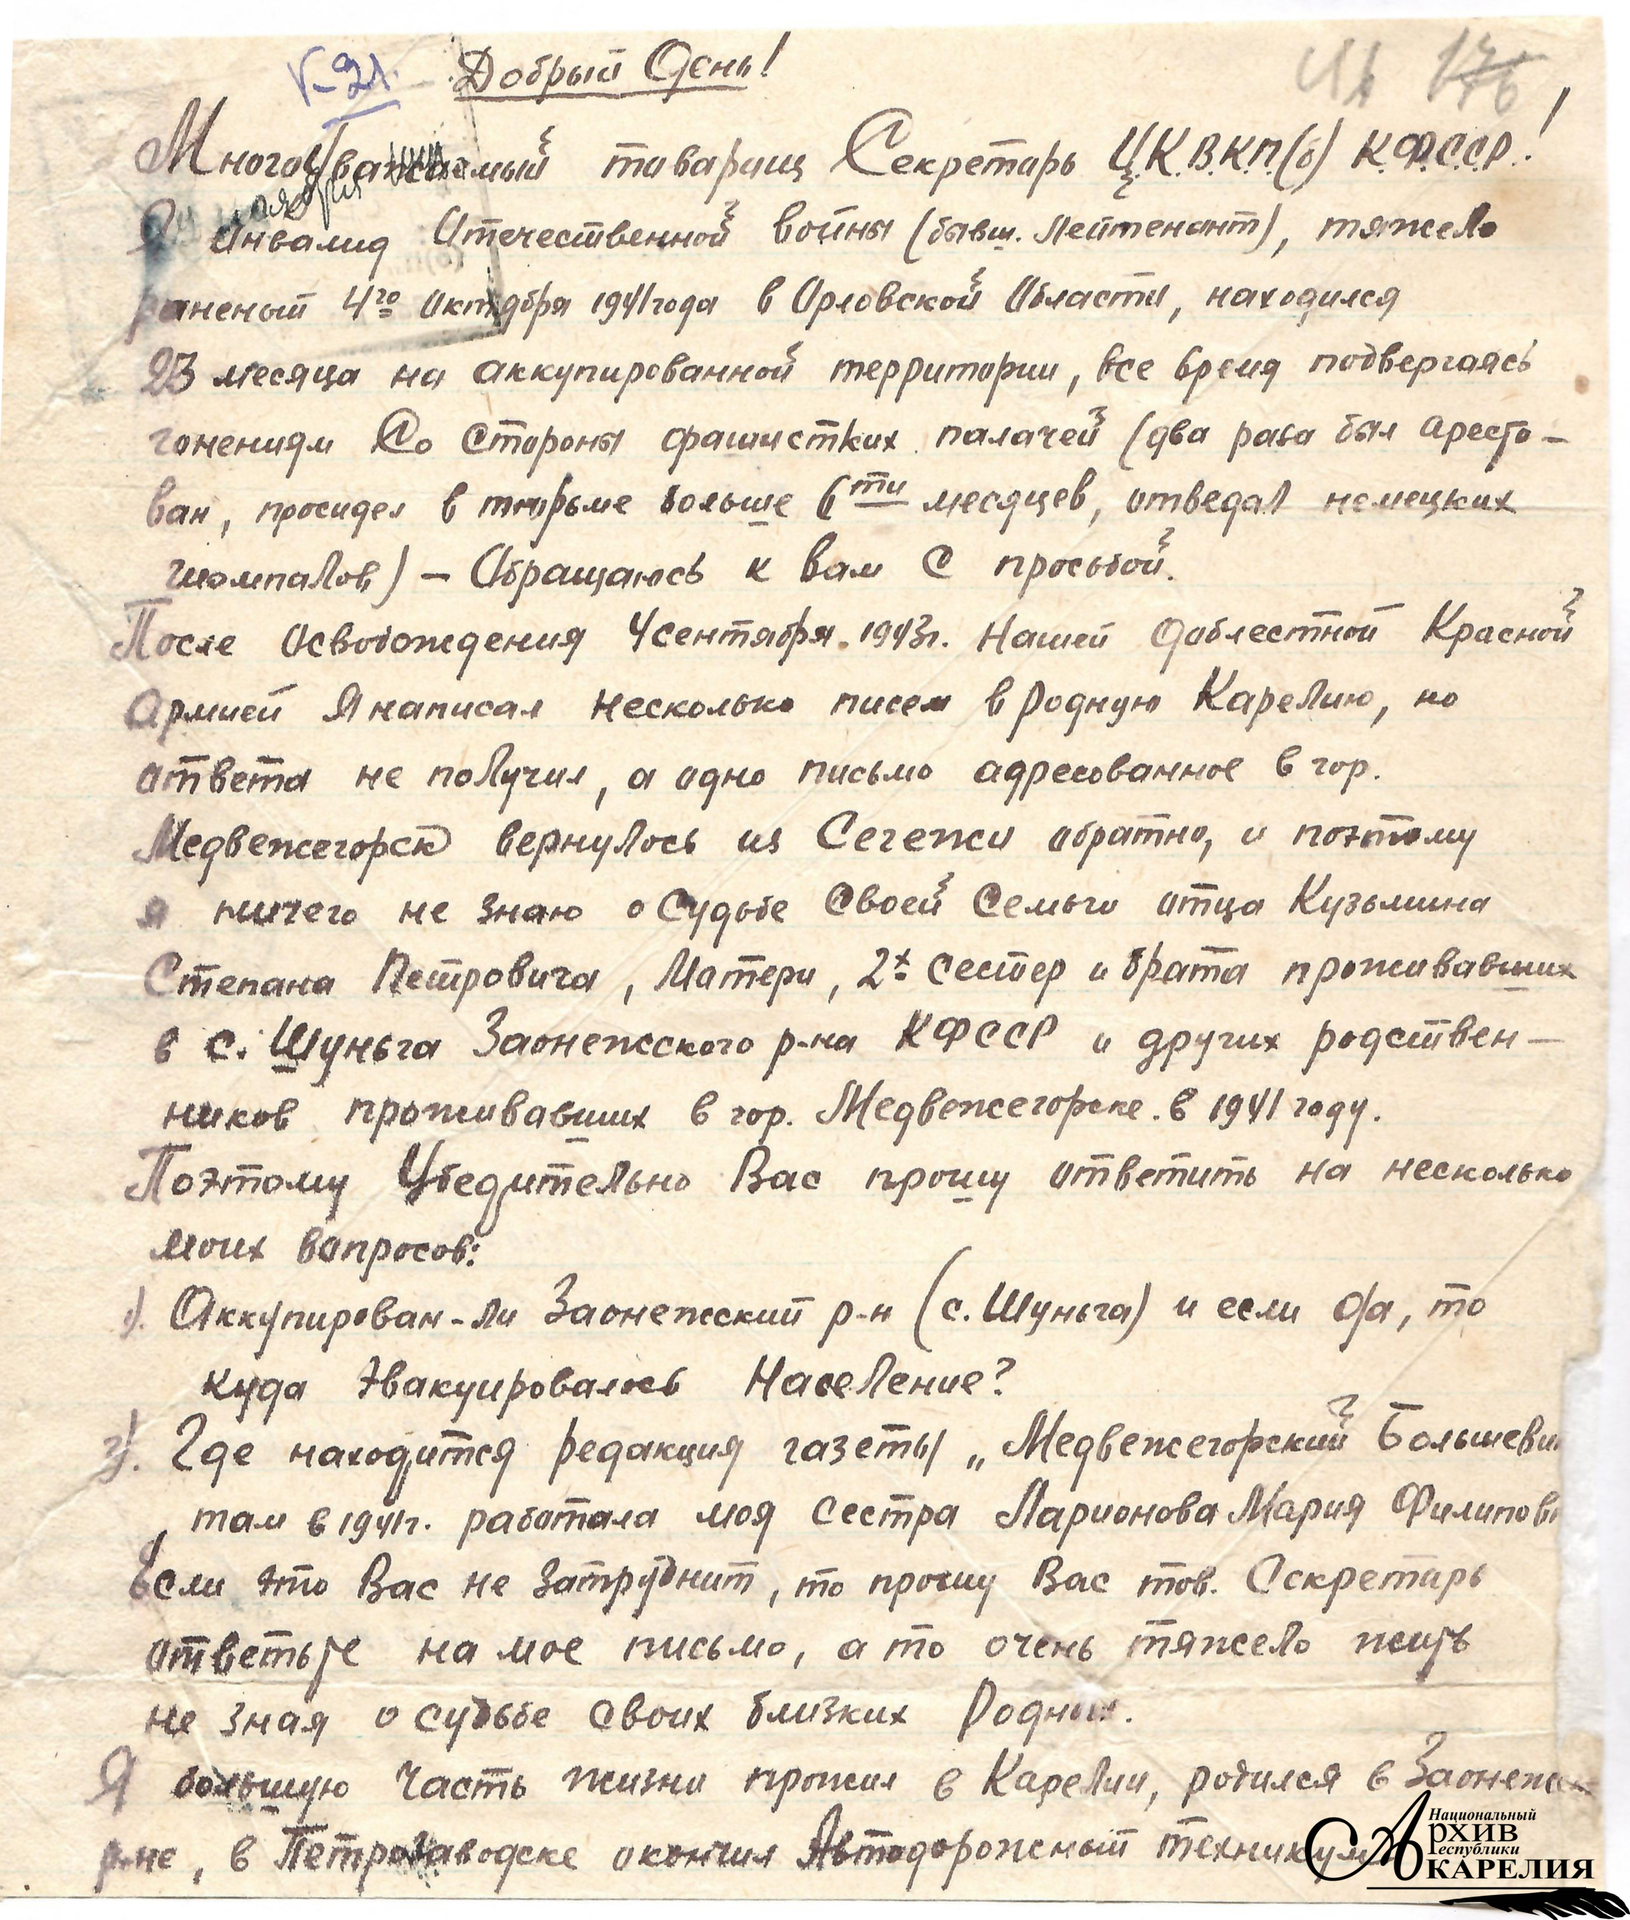 Добрый День!
Многоуважаемый товарищ Секретарь Ц.К.В.К.П.(б) К.Ф.С.С.Р.!
Я Инвалид Отечественной войны (бывш. Лейтенант), тяжело
раненый 4го Октября 1941 года в Орловской Области, находился
23 месяца на аккупированной территории, все время подвергаясь
гонениям Со Стороны фашистких палачей (два раза был аресто-
ван, просидел в тюрьме больше 6ти месяцев, отведал немецких
шомполов) – Обращаюсь к вам С просьбой.
После Освобождения 4 сентября 1943г. Нашей Доблестной Красной
Армией Я написал несколько писем в родную Карелию, но
ответа не получил, а одно письмо адресованное в гор.
Медвежегорск вернулось из Сегежи обратно, и поэтому
я ничего не знаю о Судьбе Своей Семьи отца Кузьмина
Степана Петровича, Матери, 2х сестер и брата проживавших
в с. Шуньга Заонежского р-на КФССР и других родствен-
ников проживавших в гор. Медвежегорске в 1941 году.
Поэтому Убедительно Вас прошу ответить на несколько
моих вопросов:
1). Аккупирован-ли Заонежский р-н (с. Шуньга) и если да, то
куда эвакуировалось Население?
2). Где находится редакция газеты „Медвежегорский Большеви
там в 1941г. работала моя сестра Ларионова Мария Филипов
Если это Вас не затруднит, то прошу Вас тов. Секретарь
ответьте на мое письмо, а то очень тяжело жить
не зная о судьбе своих близких Родных.
Я большую Часть жизни прожил в Карелии, родился в Заонежск
р-не, в Петрозаводске окончил Автодорожный техникум
Национальный
Архив
Республики
Карелия